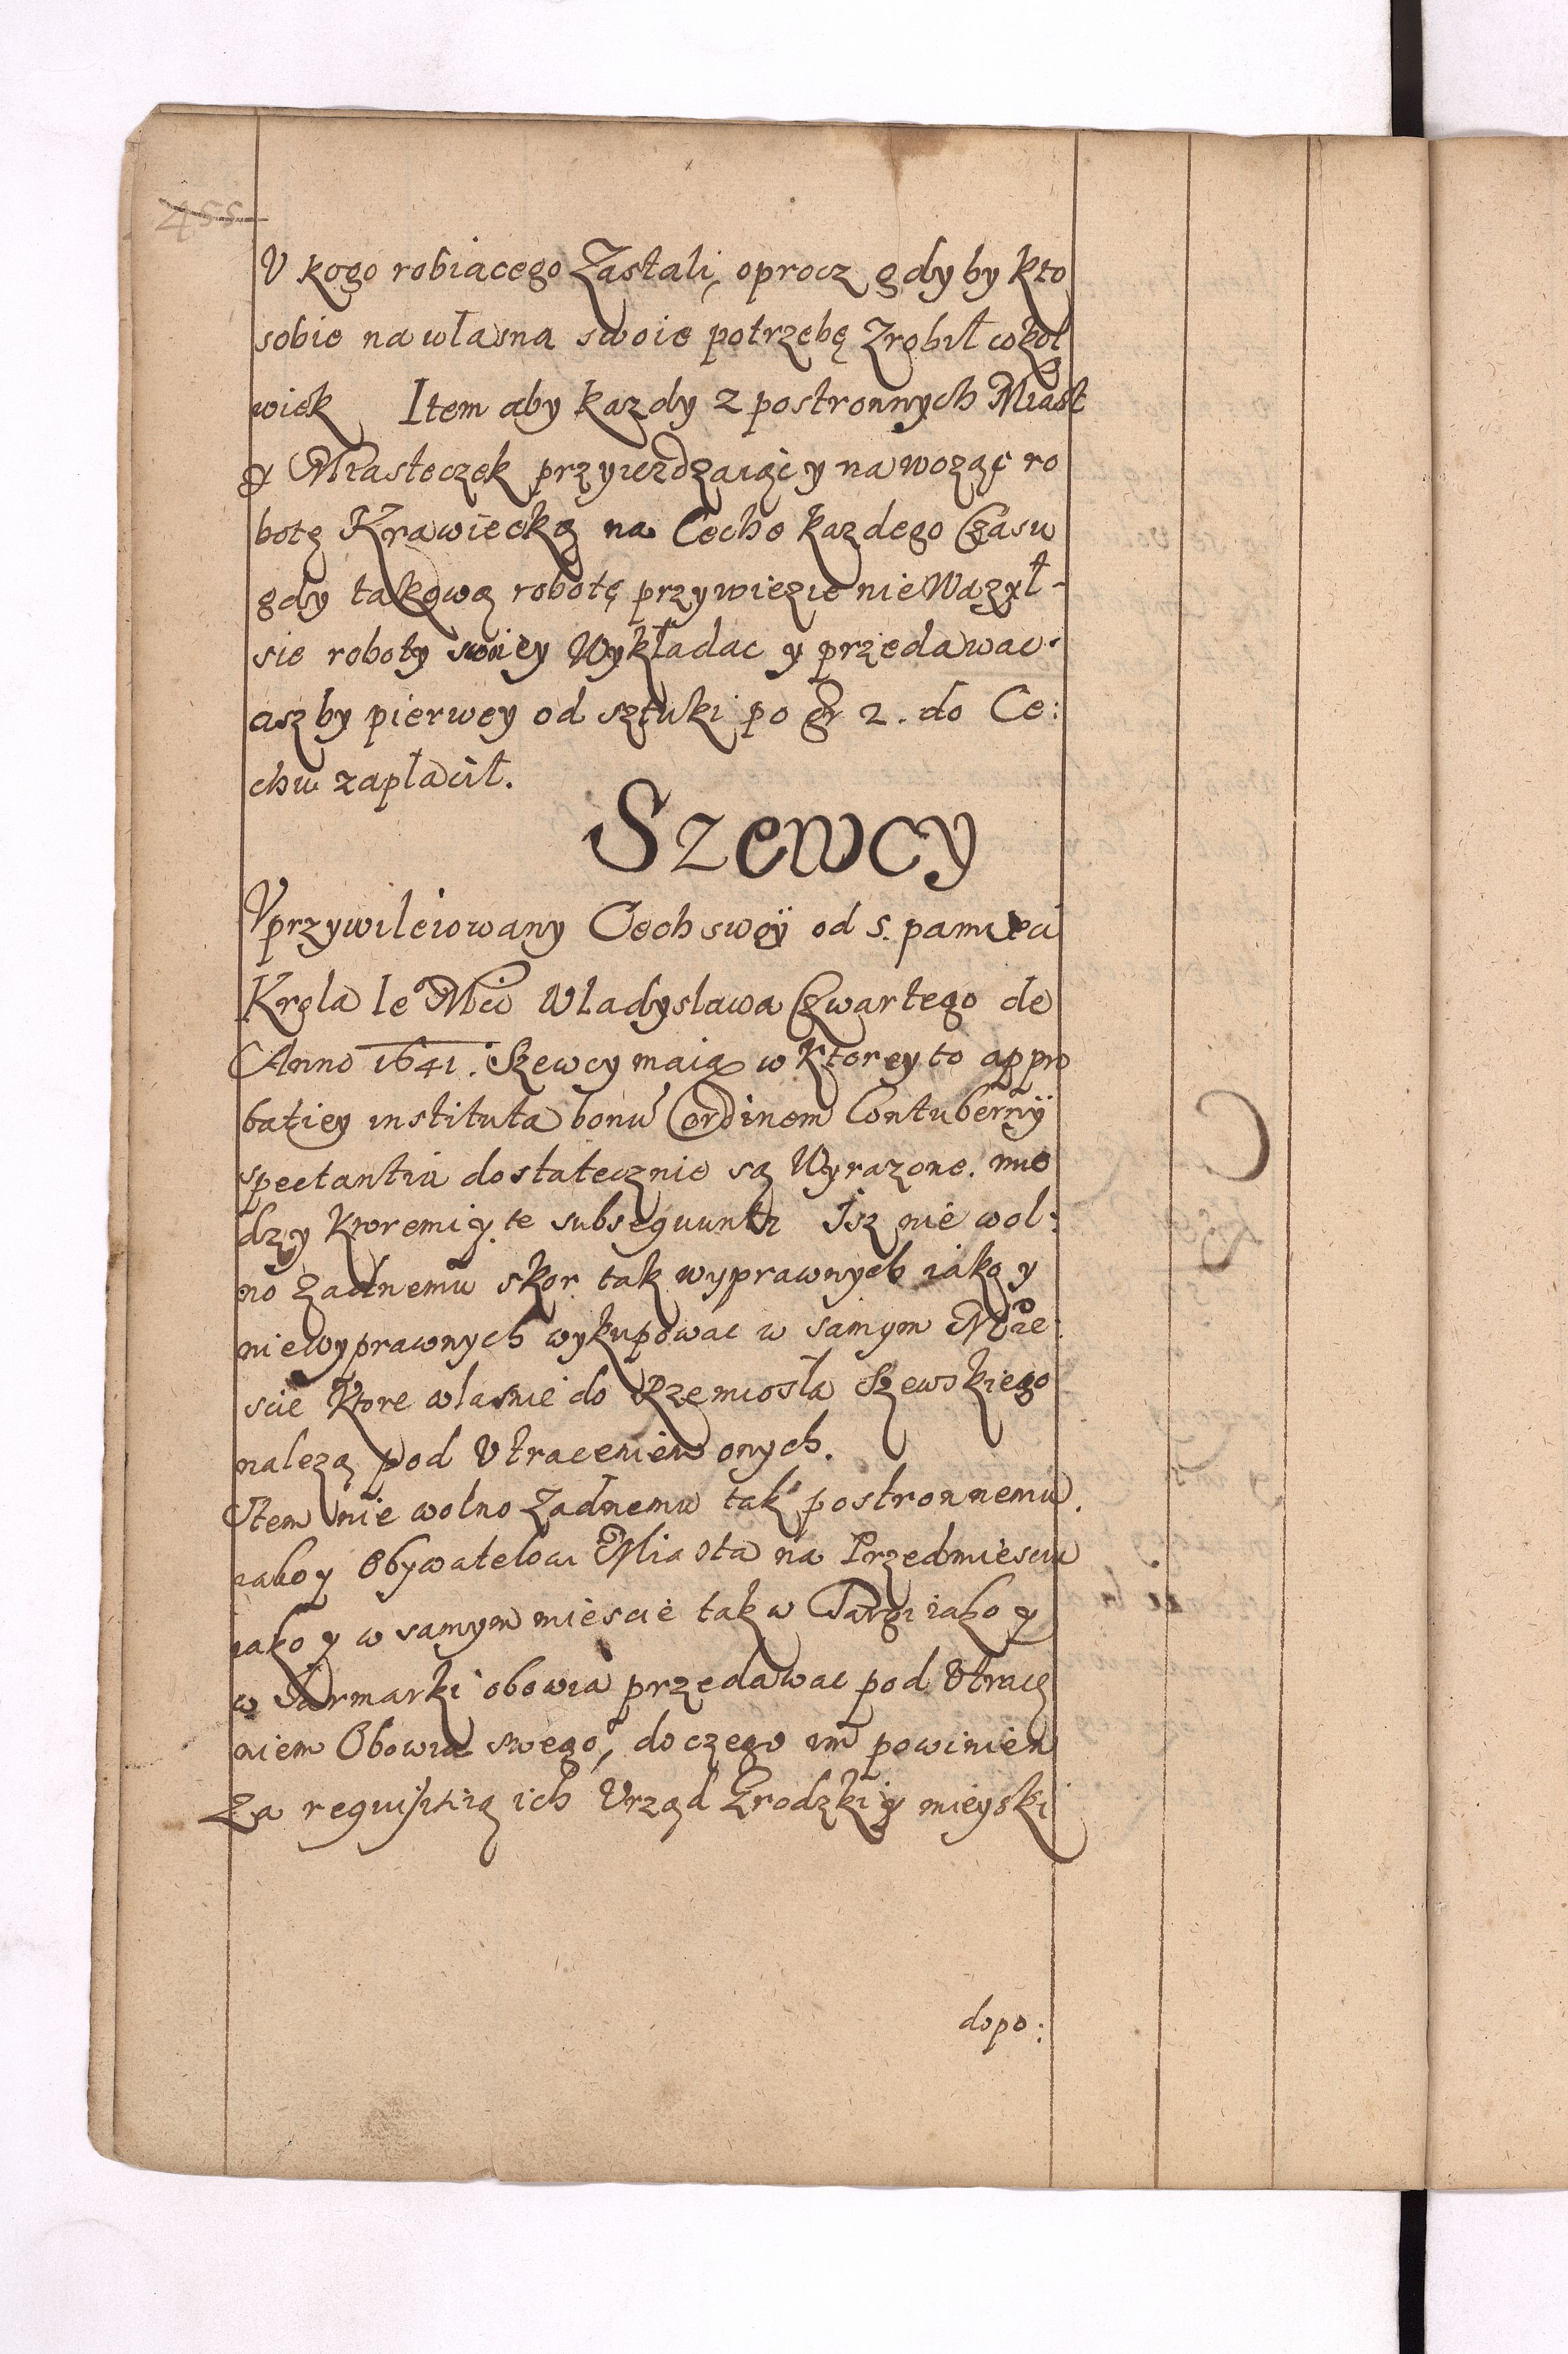 455
V kogo robiacego Zastali, oprocz gdyby kto
sobie na własna swoie potrzebę Zrobił cokol
wiek Item aby kazdy z postronnych Miast
y Miasteczek przyiezdzaiący nawoząc ro
botę Krawiecką na Coche kazdego Czasu
gdy takową robotę przywiezie nie Wazył-
sie roboty swoiey Wykładac y przedawac.
aszby pierwey od sztuki po gr 2. do Ce:
chu zapłacił.
Szewcy
Vprzywileiowany Cech swoÿ od s. pamieci
Krola Ie° Mci Wladyslawa Czwartego de
Anno 1641. Szewcy maią w ktorey to appro
batiey instituta bonu ordinem Contubernÿ
spectantia dostatecznie są Wyrazone. mie
dzy ktoremi y te subsequuntr Isz nie wol:
no Zadnemu skor tak wyprawnych iako y
niewyprawnych wykupowac w samym Mie:
scie Ktore własnie do Rzemiosła Szewskiego
nalezą pod Vtraceniem onych.
Item nie wolno Zadnemu tak postronnemu.
iako y Obywatelowi Miasta na Przedmiesciu
iako y w samym miescie tak w Targi iako y
w Jarmarki obowia przedawac pod Vtracę
niem Obowia swego, do czego im powinien
Za requisitią ich Vrząd Grodzki y mieyski
dopo: